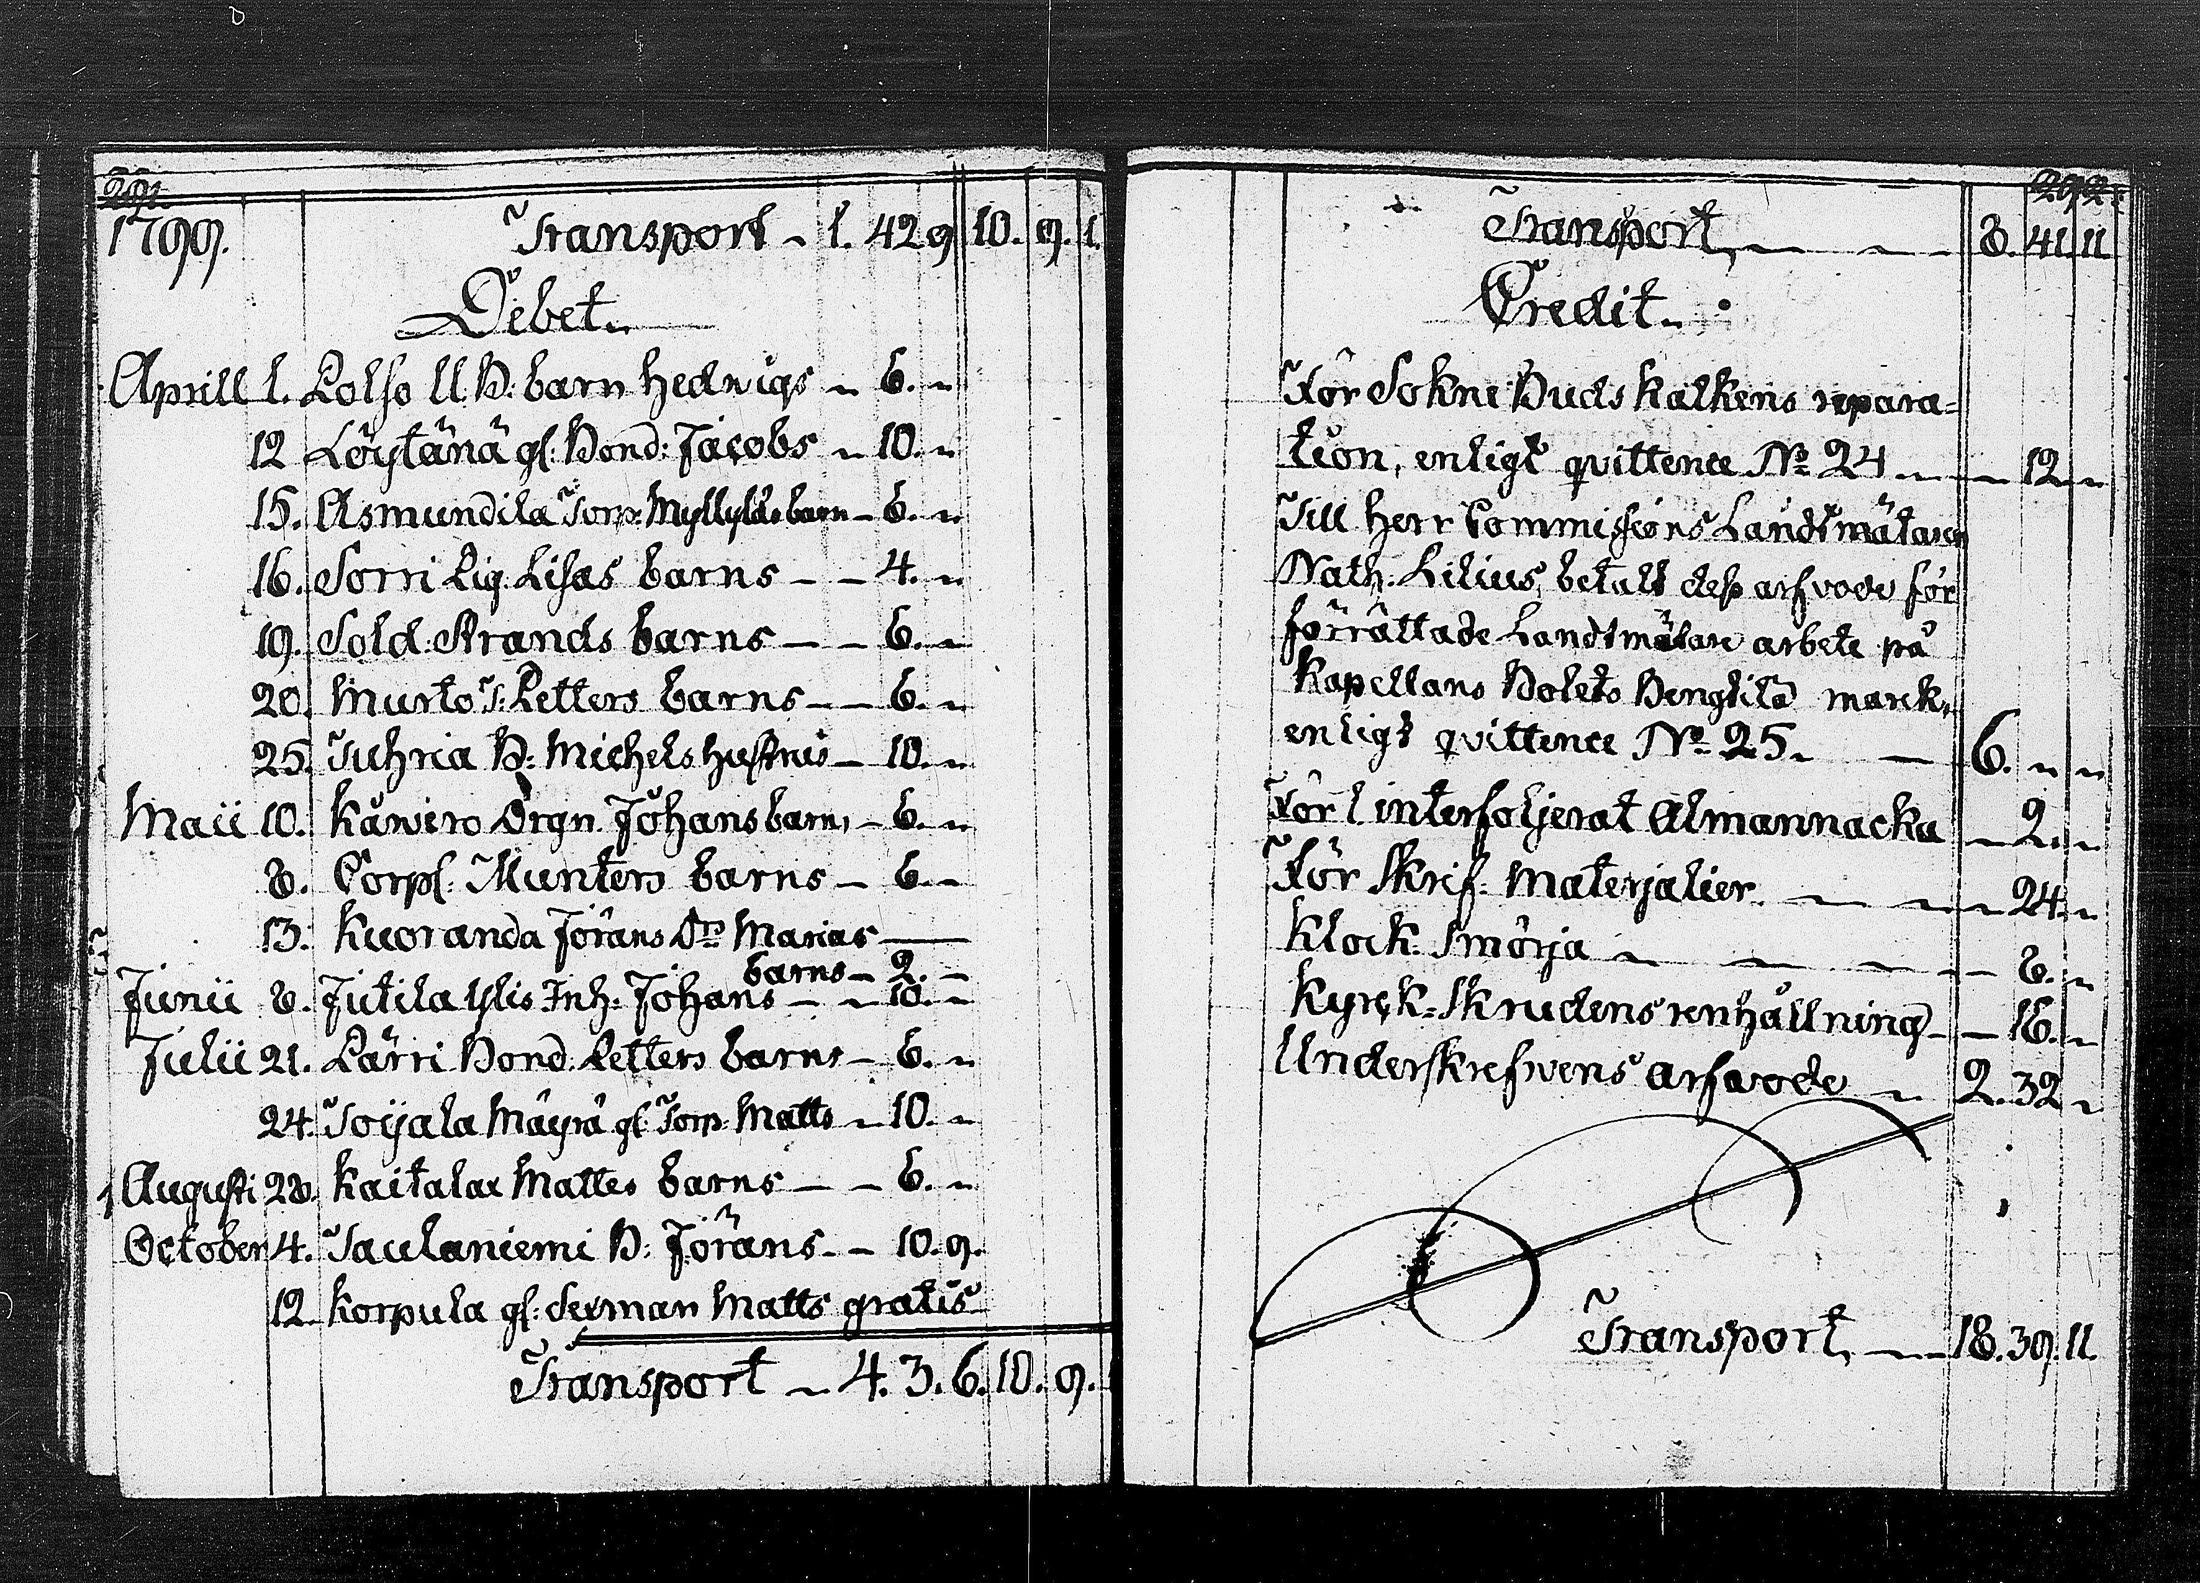 291.
1799. Transport - 1. 42 9 10. 9. 1.
Debet.
Aprill 1. Polso U. B: barn Hedwigs - 6. -
12 Löytänä gl: Bond: Jacobs - 10. -
15. Asmundila Torp: barn - 6. -
16. Sorri Pig. Lisas barns - - 4. -
19. Sold: Strands barns - - 6. -
20. Murto T: Petters barns - - 6. -
25. Juhria B: Michels hustrus - 10. -
Maii 10. Kåwero Drgn. Johans barns - 6. -
8. Corpl: Munters barns - 6. -
13. Kuoranda Jörans Dtr Marias
barns - 2. -
Junii 8. Jutila Ylis Inh. Johans - - 10. -
Julii 21. Pärri Bond. Petters barns - 6. -
24. Toijala Mäyrä gl Torp: Matts - 10. -
Augusti 28. Kaitalax Mattes barns - - 6. -
October 4. Taulaniemi B: Jörans - - 10. 9.
12. Korpula gl: Matts gratis
Transport - 4. 3. 6. 10. 9.
292.
Transport, - - - 8. 41. 11.
Credit.
För Sokne Buds Kalkens repara=
tion, enligt qvittence No 24 - - 12. -
Till Herr Commissions Landtmätaren
Nath: Lilius, betalt dess arfvode för
förrättade Landtmätare arbete på
Kapellans Bolets Bengtilä marck,
enligt qvittence No 25. - 6. - -
För 1 interfoljerat Almannacka - 2. -
För Skrif. Materjalier. - - - 24. -
Klock. Smörja - - - - 8. -
Kyrck=Skrudens renhållning - - 16. -
Underskrefvens arfvode - 2. 32 -
Transport, - 18. 39. 11.